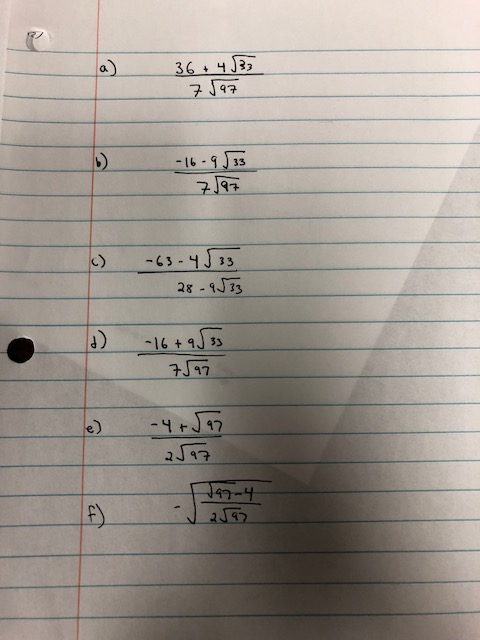 a) (36 + 4√33)/(7√97)
b) (-16 - 9√33)/(7√97)
c) (-63 - 4√33)/(28 - 9√33)
d) (-16 + 9√33)/(7√97)
e) (-4 + √97)/(2√97)
f) -√((√97 - 4)/(2√97))